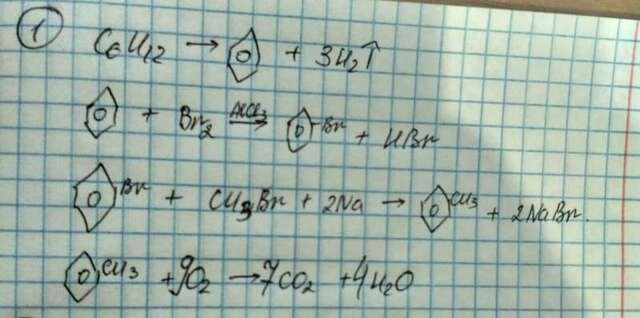 1
C6H12 → + 3H2↑
+ Br2 AlCl3 → Br + HBr
Br + CH3Br + 2Na → CH3 + 2NaBr.
CH3 + 9O2 → 7CO2 + 4H2O